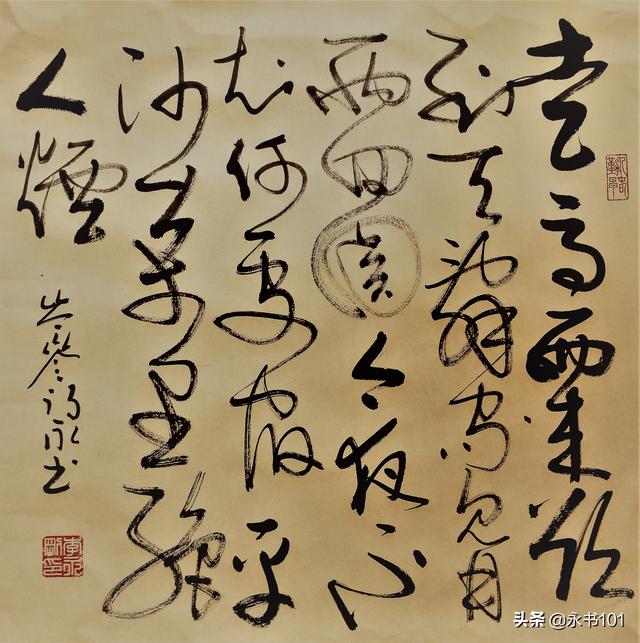 走馬西来欲
到天辭家见月
两回圓今夜不
知何處宿平
沙萬里绝
人煙
岑参诗永书
头条 @永书101